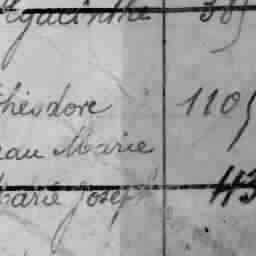 Hyacinthe 385
Théodore 1105
eau Marie
Marie Joseph 113